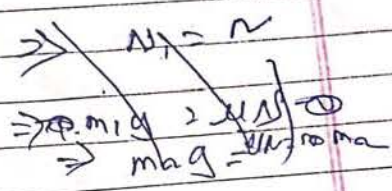 ⇒ N₁ = N
⇒ m₁g = μN ①
⇒ mag = ma